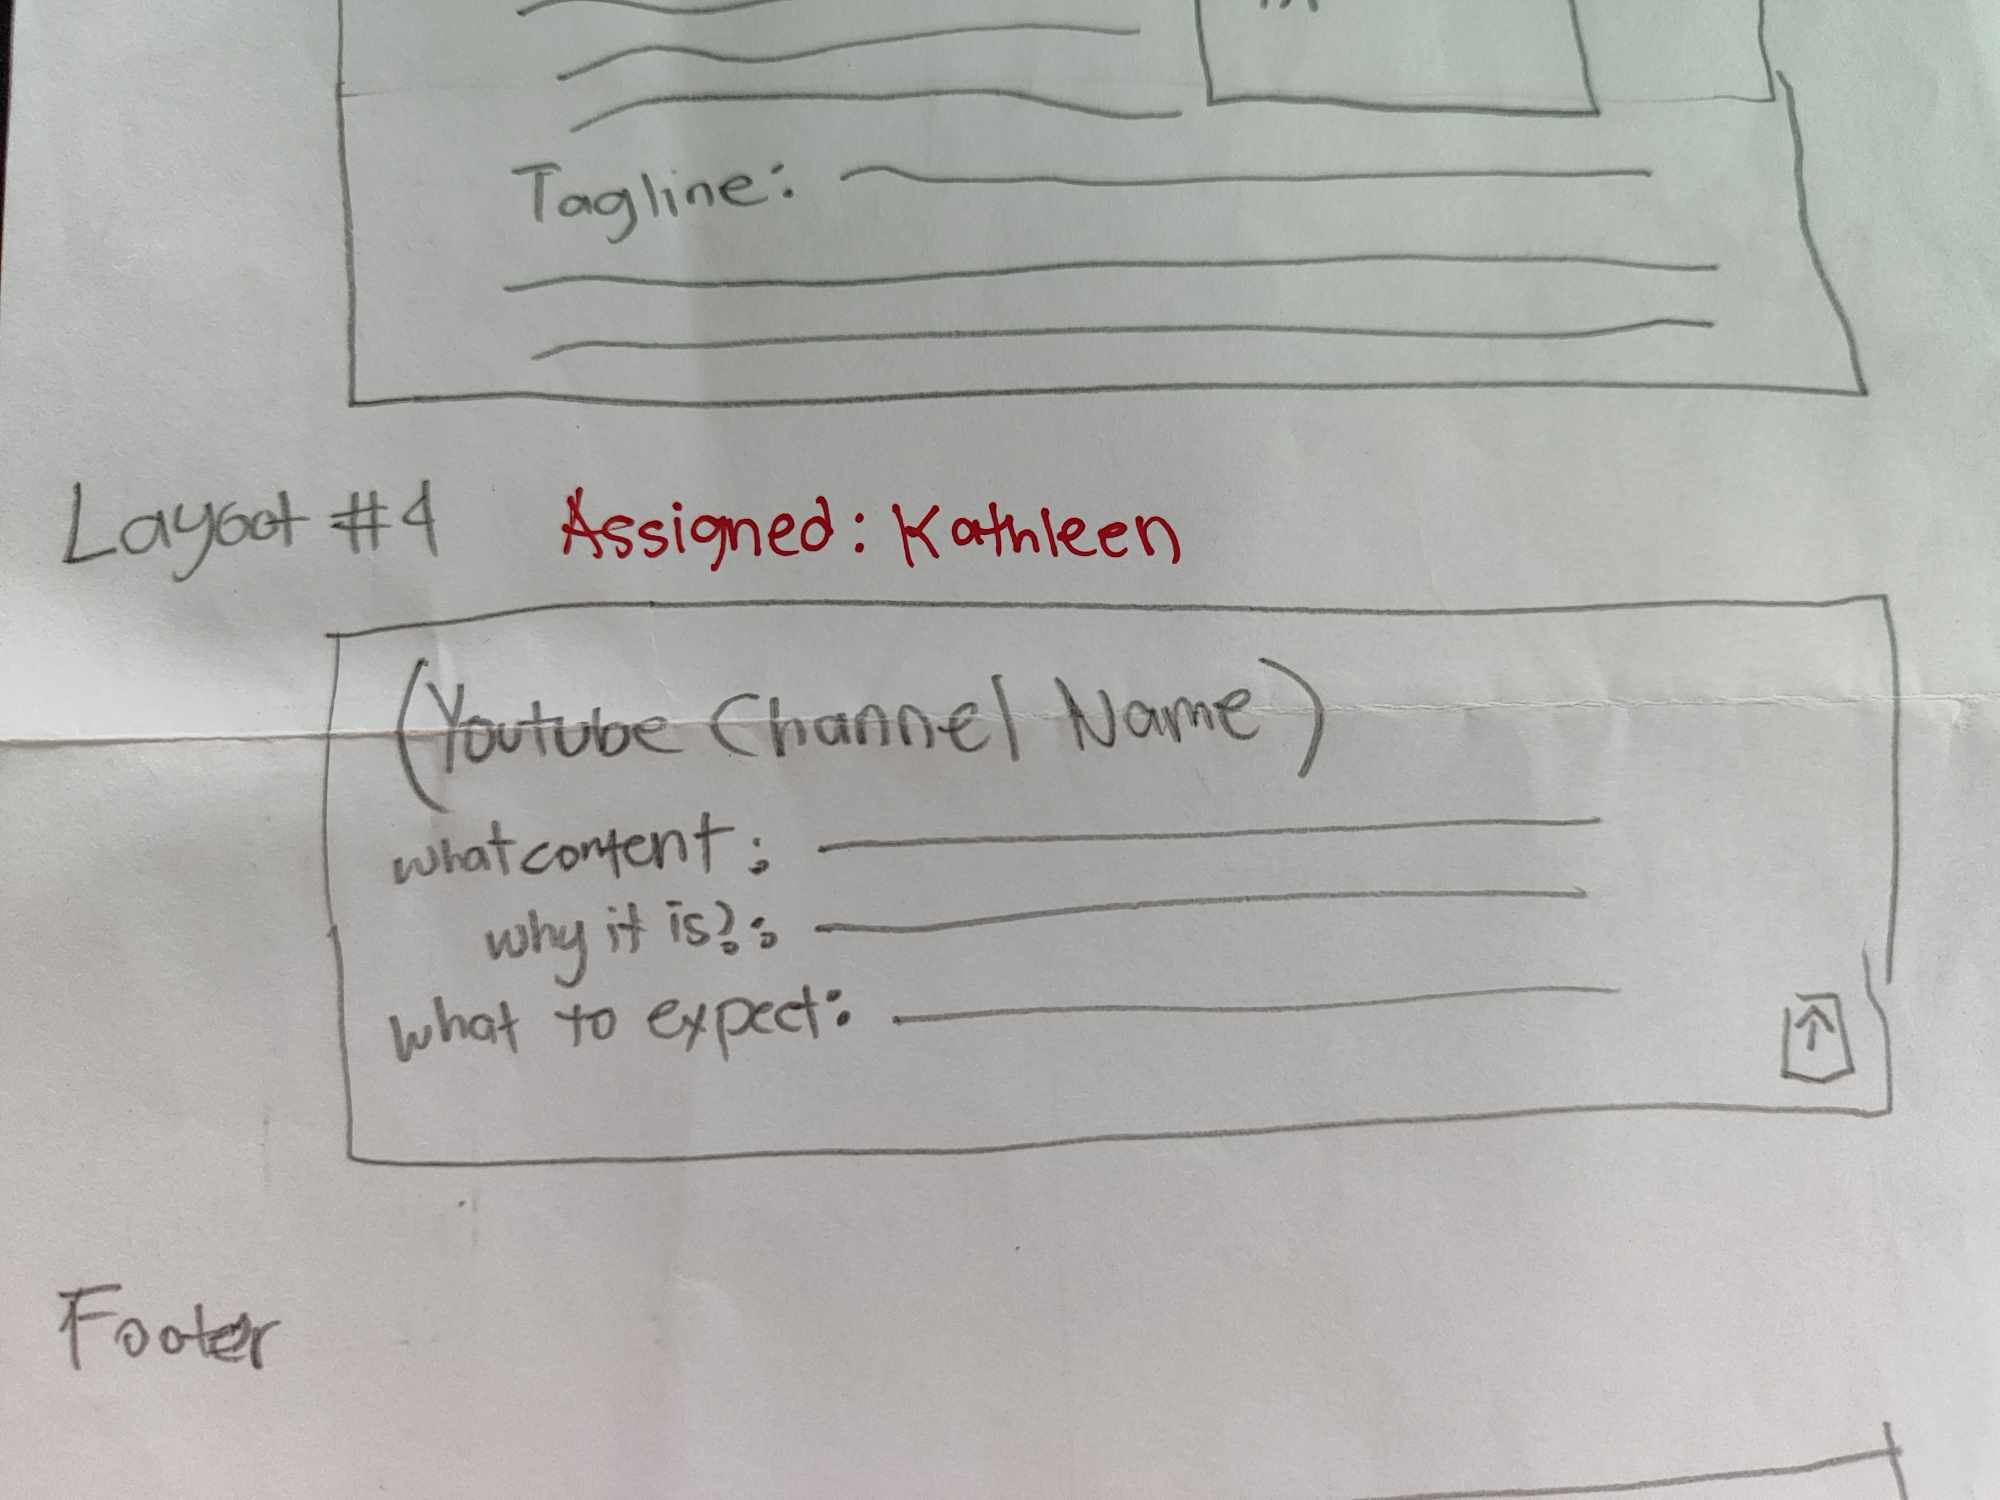 Tagline:
Layout #4 Assigned: Kathleen
(Youtube Channel Name)
what content:
why it is?:
what to expect:
Footer